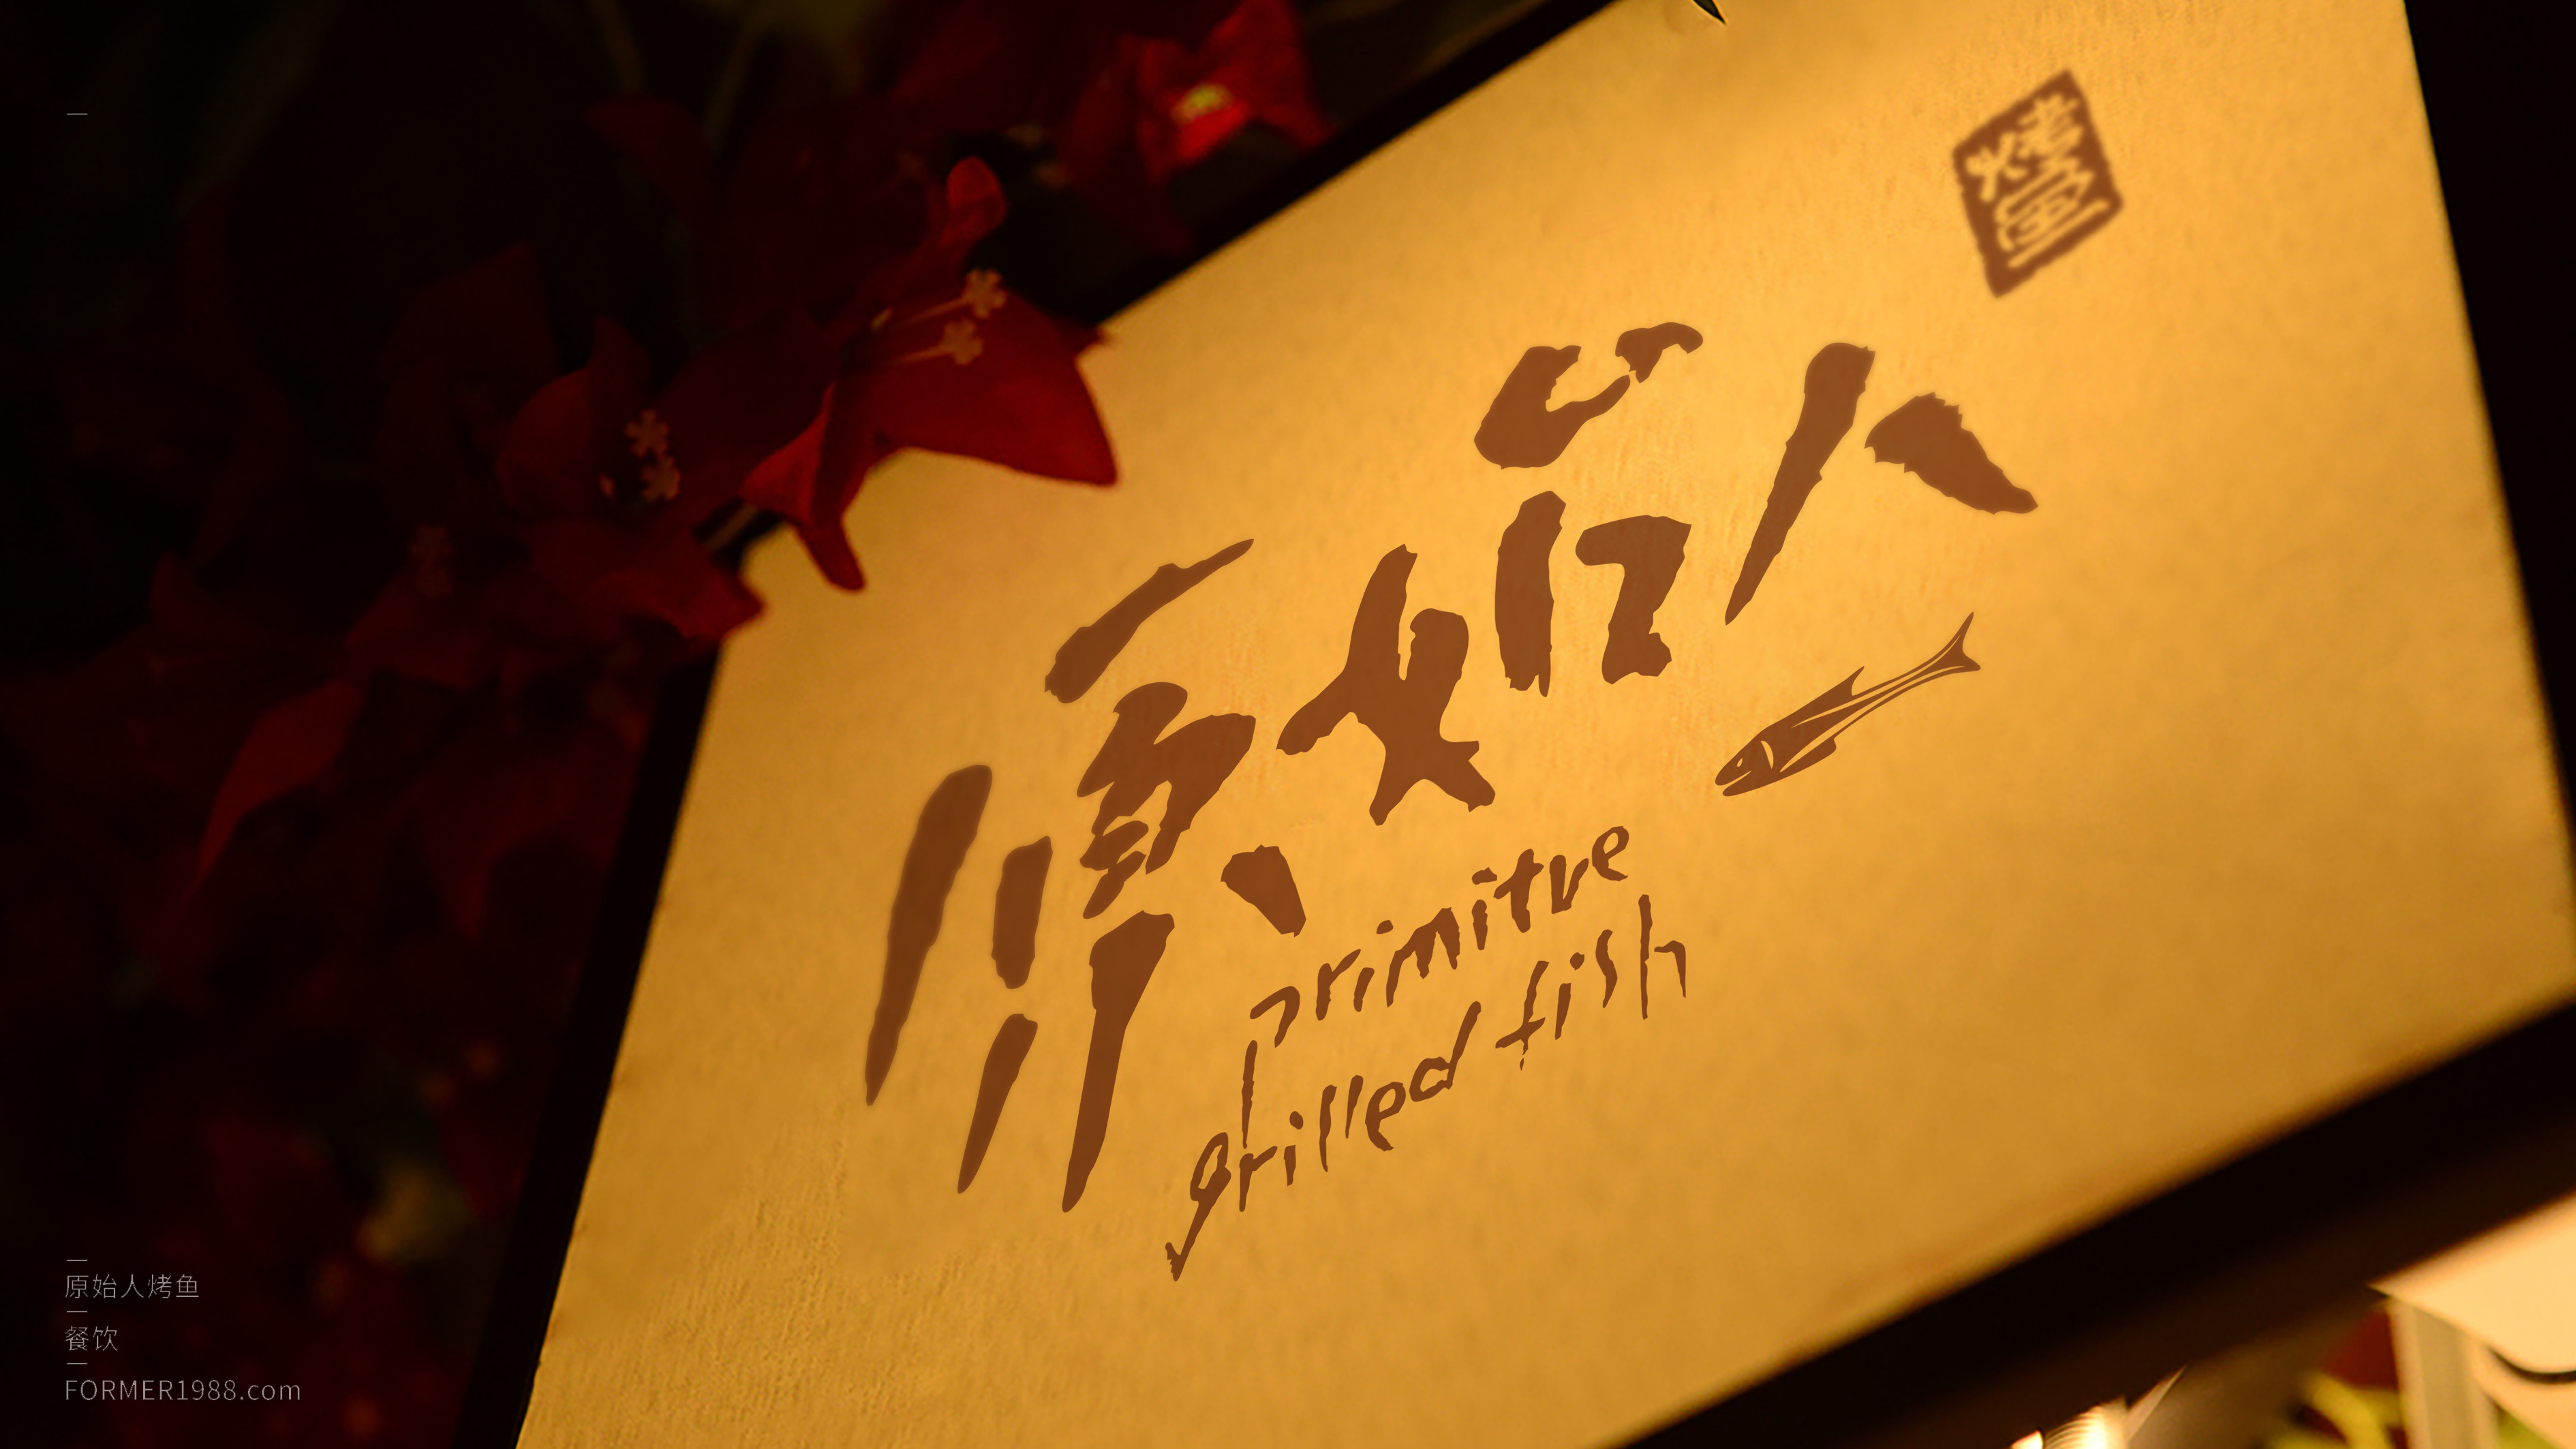 烤鱼
原始人
primitve
grilled fish
原始人烤鱼
餐饮
FORMER1988.com